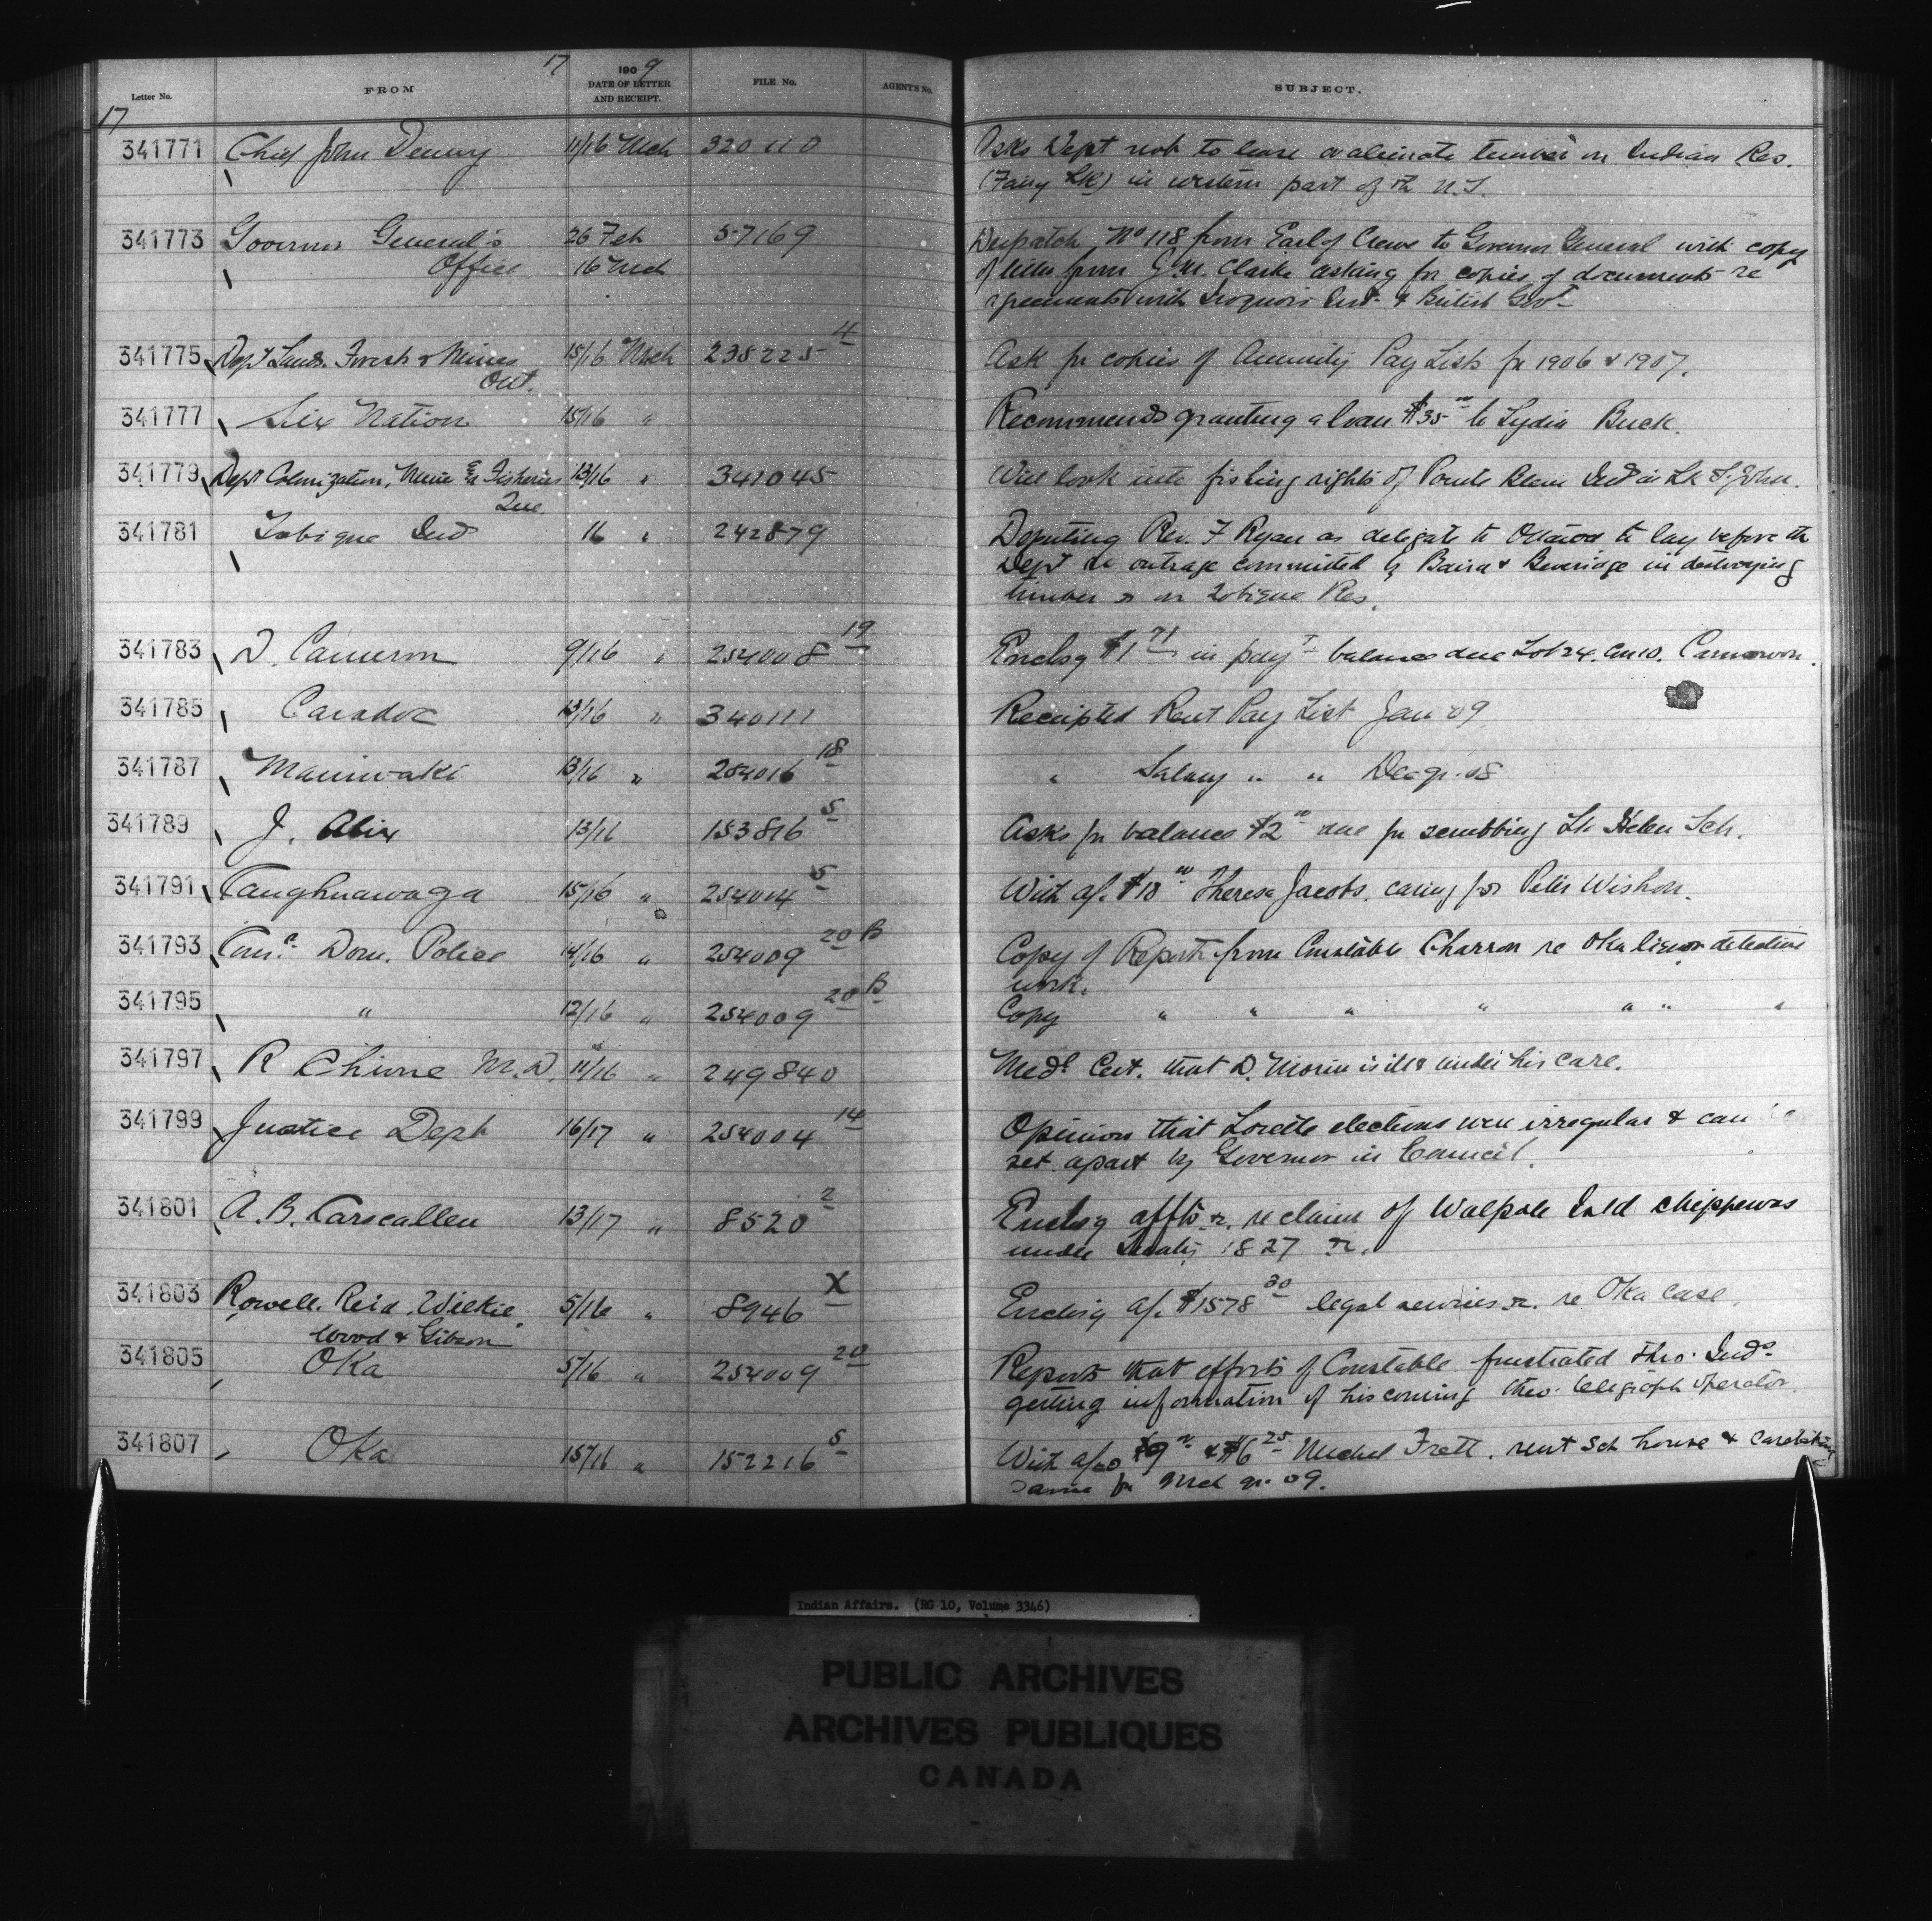 17
1909
Letter No. FROM DATE OF LETTER AND RECEIPT. FILE No. AGENTS No. SUBJECT.
17
341771 Chief John Denny 11/16 Mch 320110 Asks Dept not to lease or alienate timber on Indian Res.
(Fairy Lk) in western part of N.S.
341773 Governor General's 26 Feb 57169 Despatch No 118 from Earl of Crewe to Governor General with copy
Office 16 Mch of letter from Clarke asking for copies of documents re
agreements with Iroquois Inds & British Govt
341775 Dept Lands. Forests & Mines 15/16 Mch 238225 4 Ask for copies of Annuity Pay Lists for 1906 & 1907.
Ont.
341777 Six Nation 15/16 " Recommends granting a loan $35 00 to Lydia Buck.
341779 Dept Colonization, Mines & Fisheries 13/16 " 341045 Will look into fishing rights of Pointe Bleue Inds in Lk St. John.
Que.
341781 Tobique Inds 16 " 242879 Deputing Rev. F Ryan as delegate to Ottawa to lay before the
Dept outrage committed by Baird & Beveridge in destroying
timber on Tobique Res.
341783 D. Cameron 9/16 " 254008 19 Enclsg $1 71 in payt balance due Lot 24. Con 10. Carnarvon.
341785 Caradoc 13/16 " 340111 Receipted Rent Pay List Jan 09
341787 Maniwaki 13/16 " 254016 18 " Salary " " Dec qr. 08
341789 J. Alix 13/16 153816 5 Asks for balance $2 00 due for scrubbing St. Helen Sch.
341791 Caughnawaga 15/16 " 254004 5 With a/c. $18 00 Theresa Jacobs. caring for Peter Wishon.
341793 Comr. Dom. Police 14/16 " 254009 20 B Copy of Reports from Constable Charron re Oka liquor detective
work.
341795 " 12/16 " 254009 20 B Copy " " " " " " "
341797 R Chevre M.D. 11/16 " 249840 Medl Cert. that D. Morin is ill & under his care.
341799 Justice Dept 16/17 " 254004 14 Opinion that Lorette elections were irregular & can be
set apart by Governor in Council.
341801 A. B. Carscallen 13/17 " 8520 2 Enclsg affts &c. re claim of Walpole Isld Chippewas
under Treaty 1827 &c.
341803 Rowell. Reid. Wilkie, 5/16 " 8946 X Enclsg a/c. $1578 30 legal services &c. re Oka case.
Wood & Gibson
341805 Oka 5/16 " 254009 20 Reports that efforts of Constable frustrated thro. Inds.
getting information of his coming thro. telegraph operator.
341807 Oka 15/16 " 152216 5 With a/cs $9 00 & $6 25 Michel Fratt. rent sch house & caretaking
same for Mch qr. 09.
Indian Affairs. (RG 10, Volume 3346)
PUBLIC ARCHIVES
ARCHIVES PUBLIQUES
CANADA